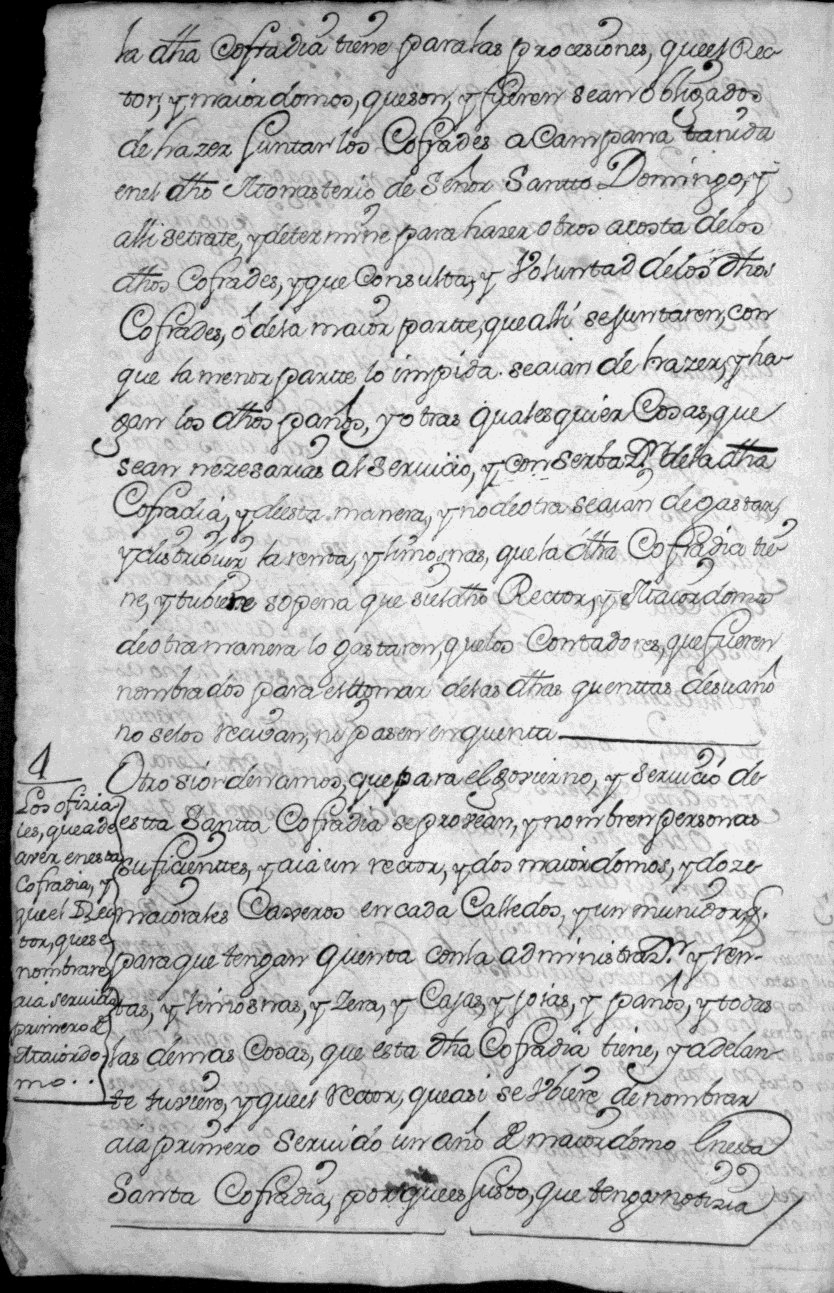 la dha Cofradia tiene paralas procesiones, queel Rec-
tor, y maiordomos, queson, y fueren sean obligados
de hazer Juntar los Cofrades acampana tanida
enel dho Monasterio de Señor Santto Domingo, y
alli setrate, y determine para hazer otros acosta delos
dhos Cofrades, y que Consulta, y Voluntad delos dhos
Cofrades, ó dela maior partte, que alli se Juntaren, con
que la menor partte lo impida. seaian de hazer, y ha-
gan los dhos paños, y otras qualesquier Cosas, que
sean nezesarias al servicio, y conserbazn. dela dha
Cofradia, y deesta manera, y nodeotra seaian degastar,
y distribuir la renta, y limosnas, que la dha Cofradia tie-
ne, y tubiere so pena que siel dho Rector, y Maiordomo
deotra manera lo gastaren, quelos Contadores, que fueren
nombrados para el ttomar delas dhas quenttas desu año
no selos recivan, ni pasen en quenta
Otro si ordenamos, que para el govierno, y servicio de
estta Santta Cofradia se provean, y nombren personas
suficienttes, y aia un rector, y dos maiordomos, y doze
maiorales Caseros en cada Calledos, y un munidor,
para que tengan quenta conla administrazn. y ren-
tas, y limosnas, y Zera, y Cajas, y joias, y paños, y todas
las demas Cosas, que esta dha Cofradia tiene, y adelan-
te tuviere, y queel rector, queasi se Ubiere denombrar
aia primero servido un año de maiordomo Enesta
Santa Cofradia, porquees Justo, que tenga notizia
4
Los ofizia
les, queade
aver enesta
Cofradia, y
que el Rec
tor, quese
nombrare
aia servido
primero de
Maiordo
mo..